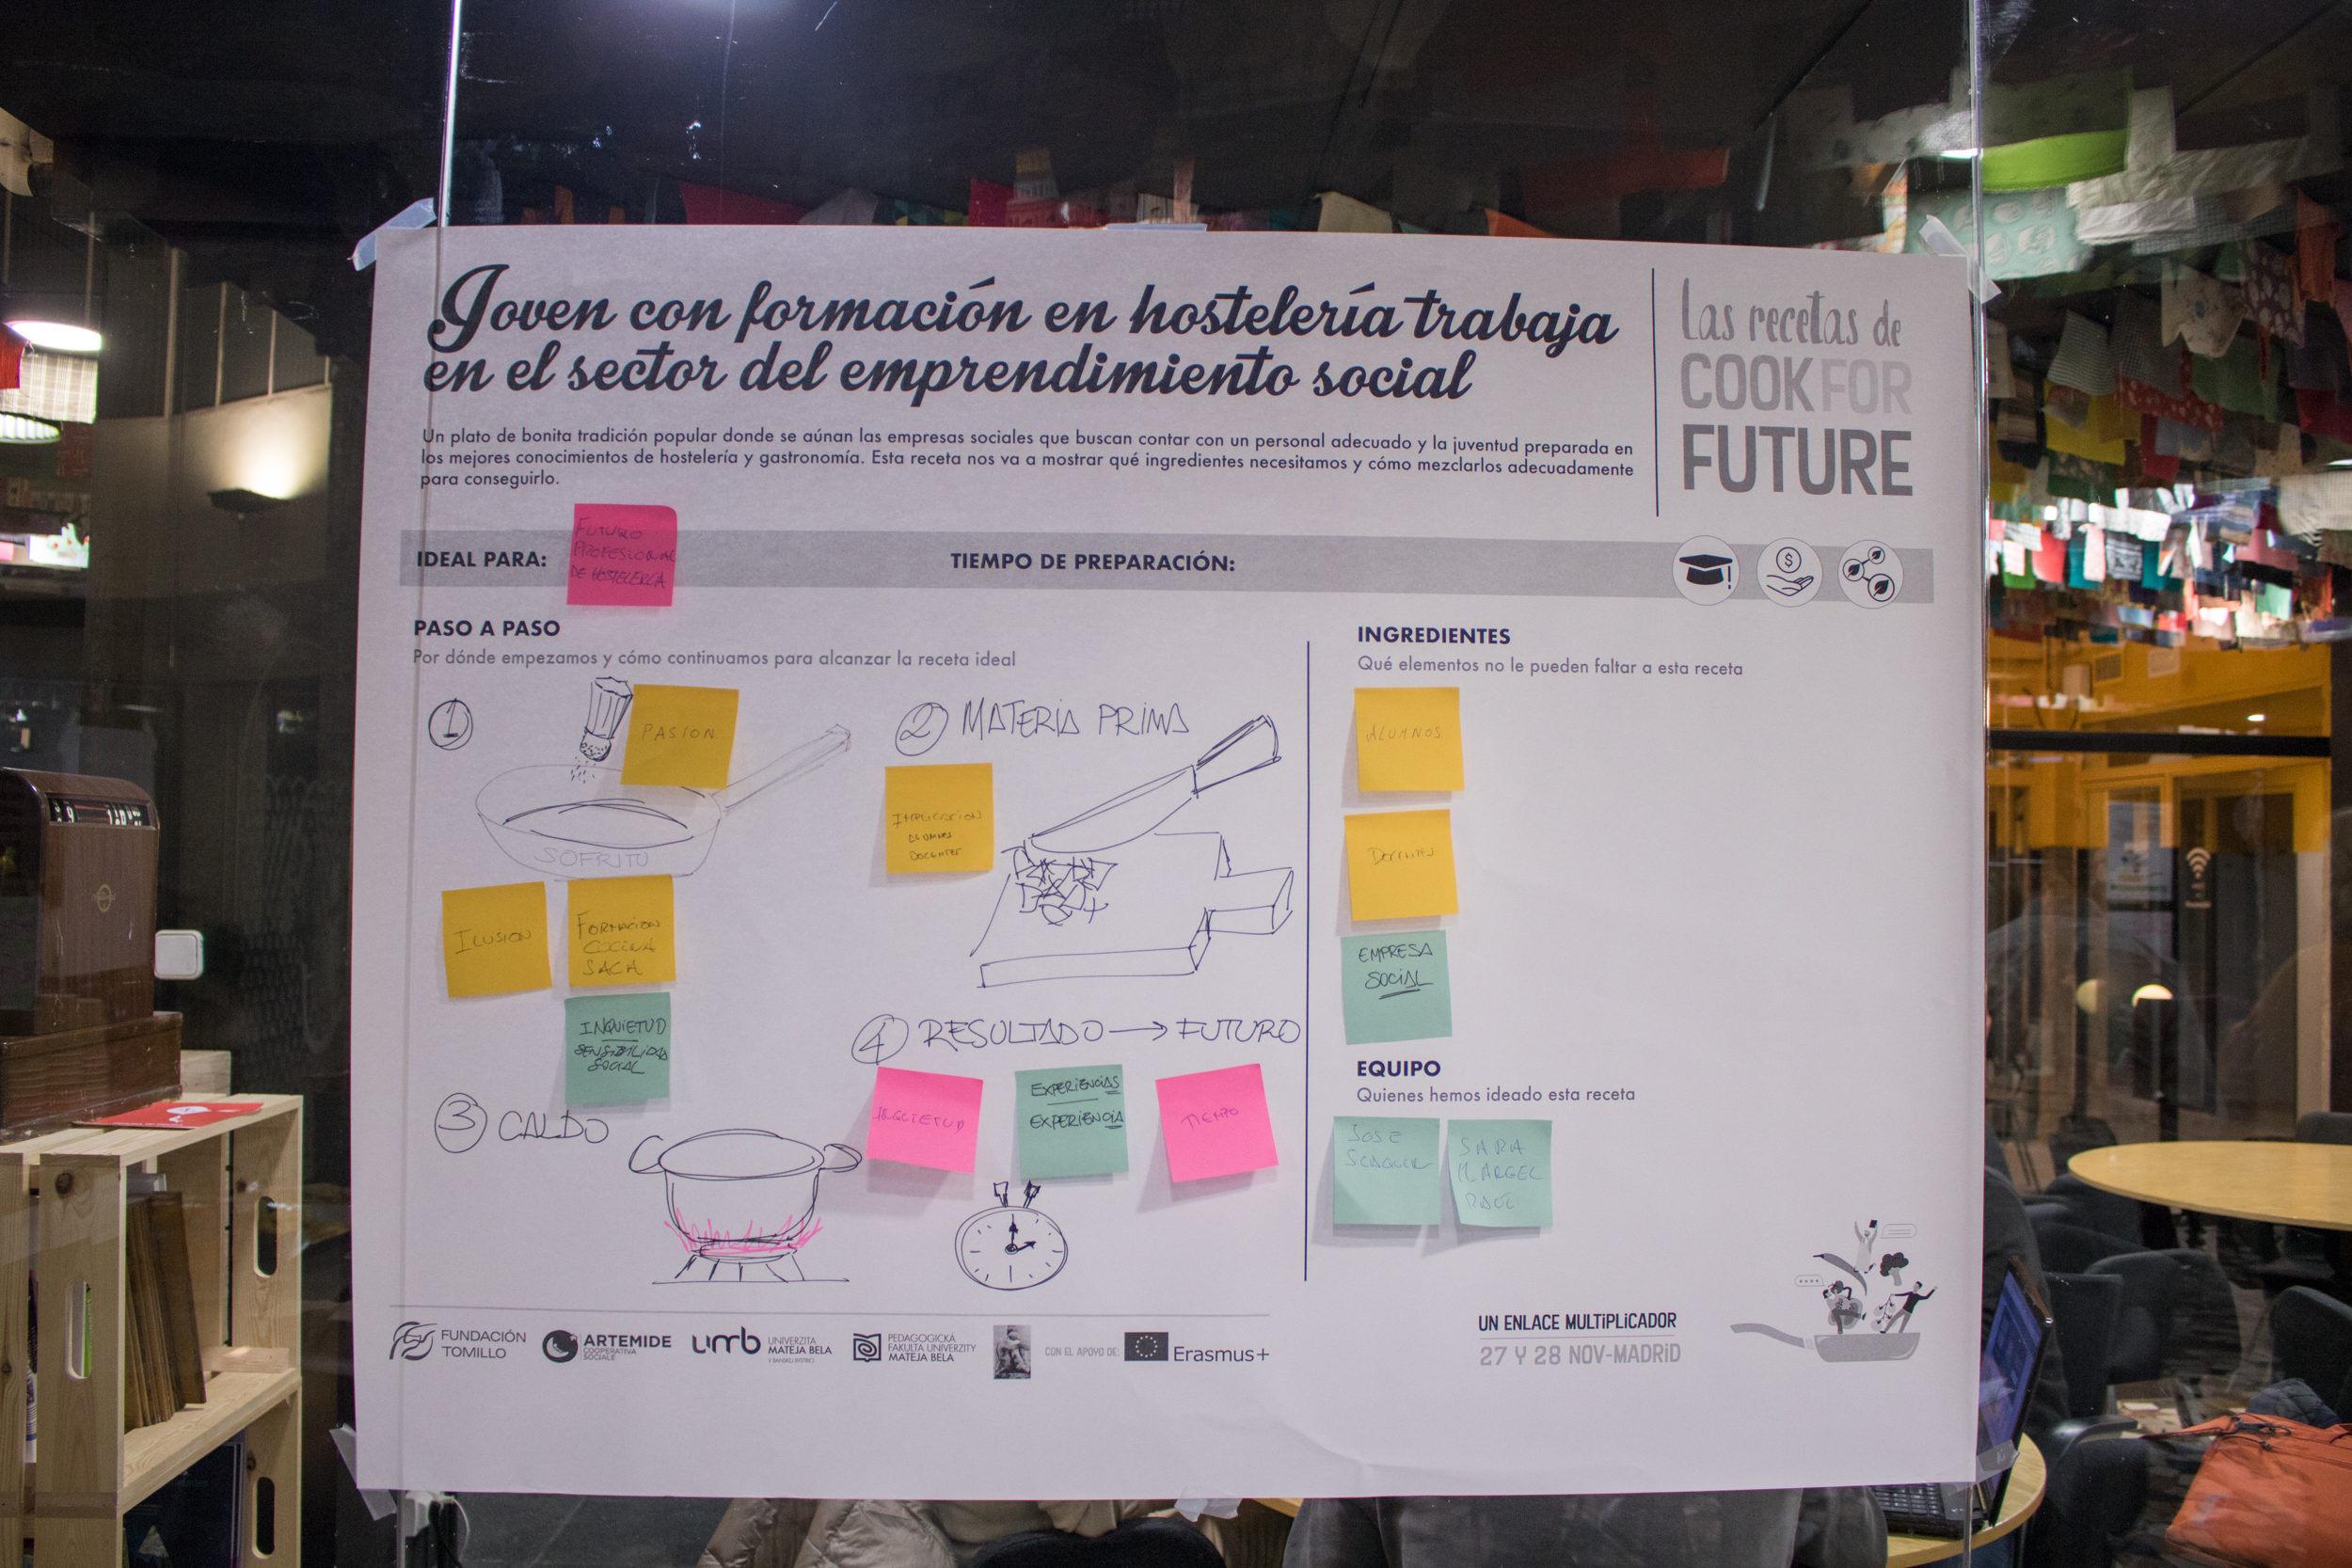 Joven con formación en hostelería trabaja
en el sector del emprendimiento social
Las recetas de
COOK FOR
FUTURE
Un plato de bonita tradición popular donde se aúnan las empresas sociales que buscan contar con un personal adecuado y la juventud preparada en
los mejores conocimientos de hostelería y gastronomía. Esta receta nos va a mostrar qué ingredientes necesitamos y cómo mezclarlos adecuadamente
para conseguirlo.
IDEAL PARA:
FUTURO
PROFESIONAL
DE HOSTELERÍA
TIEMPO DE PREPARACIÓN:
PASO A PASO
Por dónde empezamos y cómo continuamos para alcanzar la receta ideal
1
PASION
SOFRITO
ILUSION
FORMACION
COCINA
SALA
INQUIETUD
SENSIBILIDAD
SOCIAL
2 MATERIA PRIMA
IMPLICACION
ALUMNOS
DOCENTES
3 CALDO
4 RESULTADO → FUTURO
INQUIETUD
EXPERIENCIAS
EXPERIENCIA
TIEMPO
INGREDIENTES
Qué elementos no le pueden faltar a esta receta
ALUMNOS
DOCENTES
EMPRESA
SOCIAL
EQUIPO
Quienes hemos ideado esta receta
JOSE
SARA
FUNDACIÓN
TOMILLO
ARTEMIDE
COOPERATIVA
SOCIALE
umb
UNIVERZITA
MATEJA BELA
V BANSKEJ BYSTRICI
PEDAGOGICKÁ
FAKULTA UNIVERZITY
MATEJA BELA
CON EL APOYO DE:
Erasmus+
UN ENLACE MULTIPLICADOR
27 Y 28 NOV-MADRID